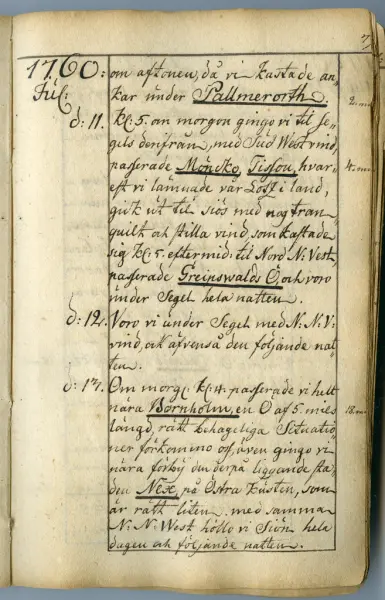 1760:
Juli:
om aftonen, då vi kastade an,
kar under Pallmerorth.
2. mi
d: 11. Kl: 5. on morgon gingo vi til Se,
gels derifrån, med Sud West vind,
passerade Möncko, Tissou, hvar,
4. mi
est vi lämnade vår Loss i land,
gick ut til siös med nog tran,
quilt och stilla vind, som kastade
sig Kl: 5. eftermid: til Nord N: Vest,
passerade Greipswalds Ö, och voro
under Segel hela natten.
d: 12. Voro vi under Segel med N: N: V:
vind, och äfvenså den följande nat,
ten.
Om morg: Kl: 4. passerade vi helt
nära Bornholm, en Ö af 5. mils
18. mi
längd, rätt behageliga Situatio,
ner förkommo oss, även gingo vi
nära förby den derpå liggande sta,
den Nex, på Östra Kusten, som
är rätt liten. med samma
N: N: West höllo vi Siön hela
dagen och följande natten.